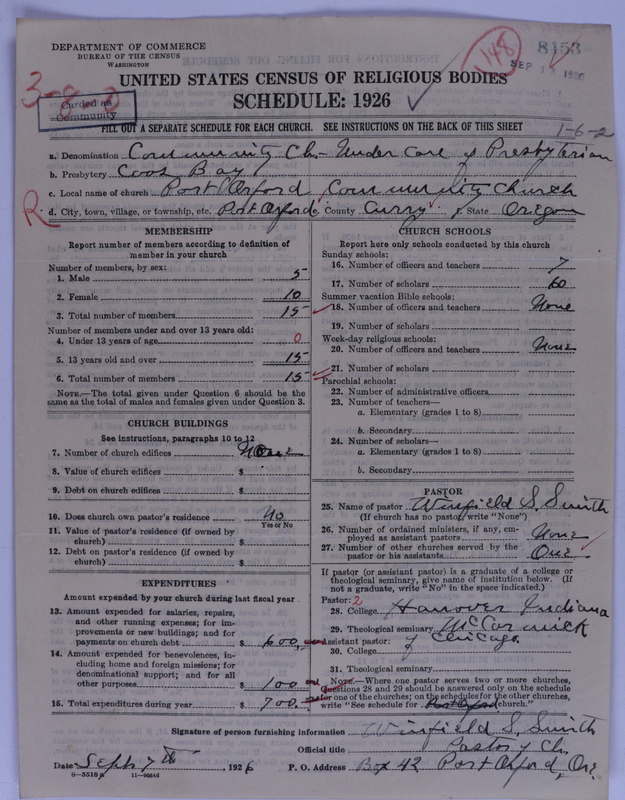 DEPARTMENT OF COMMERCE
BUREAU OF THE CENSUS
WASHINGTON
148
8453
SEP 13 1926
UNITED STATES CENSUS OF RELIGIOUS BODIES
SCHEDULE: 1926
Carded as
Community
FILL OUT A SEPARATE SCHEDULE FOR EACH CHURCH. SEE INSTRUCTIONS ON THE BACK OF THIS SHEET
1-6-2
a. Denomination Community Ch.- Under Care of Presbyterian
b. Presbytery Coos Bay
c. Local name of church Port Orford Community Church
R.
d. City, town, village, or township, etc. Port Orford e. County Curry f. State Oregon
MEMBERSHIP
Report number of members according to definition of
member in your church
Number of members, by sex:
1. Male 5
2. Female 10
3. Total number of members 15
Number of members under and over 13 years old:
4. Under 13 years of age 0
5. 13 years old and over 15
6. Total number of members 15
NOTE.—The total given under Question 6 should be
same as the total of males and females given under Question 3.
CHURCH BUILDINGS
See instructions, paragraphs 10 to 12
7. Number of church edifices None
8. Value of church edifices $
9. Debt on church edifices $
10. Does church own pastor's residence No
Yes or No
11. Value of pastor's residence (if owned by
church) $
12. Debt on pastor's residence (if owned by
church) $
EXPENDITURES
Amount expended by your church during last fiscal year
13. Amount expended for salaries, repairs,
and other running expenses; for im-
provements or new buildings; and for
payments on church debt $ 600.
14. Amount expended for benevolences, in-
cluding home and foreign missions; for
denominational support; and for all
other purposes $ 100
15. Total expenditures during year $ 700
CHURCH SCHOOLS
Report here only schools conducted by this church
Sunday schools:
16. Number of officers and teachers 7
17. Number of scholars 60
Summer vacation Bible schools:
18. Number of officers and teachers None
19. Number of scholars
Week-day religious schools:
20. Number of officers and teachers None
21. Number of scholars
Parochial schools:
22. Number of administrative officers
23. Number of teachers—
a. Elementary (grades 1 to 8)
b. Secondary
24. Number of scholars—
a. Elementary (grades 1 to 8)
b. Secondary
PASTOR
25. Name of pastor Winfield S. Smith
(If church has no pastor, write "None")
26. Number of ordained ministers, if any, em-
ployed as assistant pastors None
27. Number of other churches served by the
pastor or his assistants One
If pastor (or assistant pastor) is a graduate of a college or
theological seminary, give name of institution below. (If
not a graduate, write "No" in the space indicated.)
Pastor: 2
28. College Hanover Indiana
29. Theological seminary McCormick
Assistant pastor: of Chicago.
30. College
31. Theological seminary
NOTE.—Where one pastor serves two or more churches,
Questions 28 and 29 should be answered only on the schedule
for one of the churches; on the schedules for the other churches,
write "See schedule for Port Orford church."
Signature of person furnishing information Winfield S. Smith
Official title Pastor of Ch.
Date Sept. 7th, 1926 P. O. Address Box 42 Port Orford, Ore.
8-5518 11-9004d